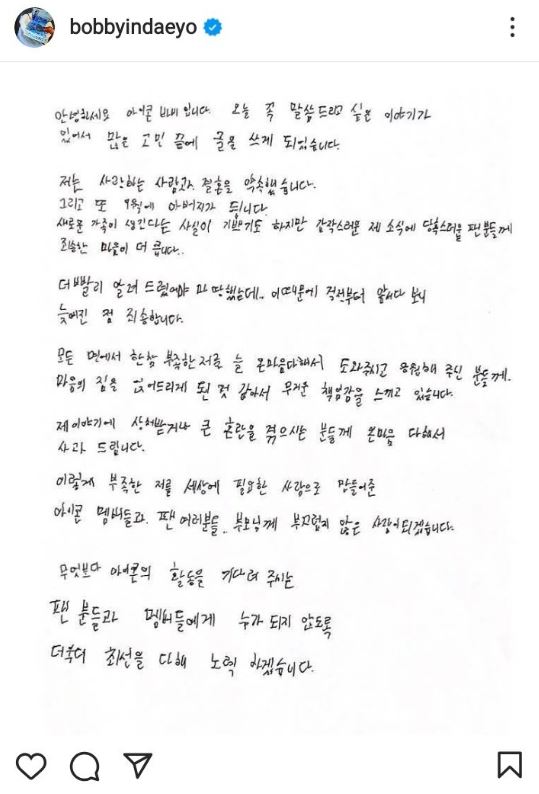 bobbyindaeyo
안녕하세요 아이콘 바비 입니다. 오늘 꼭 말씀드리고 싶은 이야기가
있어서 많은 고민 끝에 글을 쓰게 되었습니다.
저는 사랑하는 사람과 결혼을 약속했습니다.
그리고 또 9월에 아버지가 됩니다.
새로운 가족이 생긴다는 사실이 기쁘기도 하지만 갑작스러운 제 소식에 당혹스러울 팬분들께
죄송한 마음이 더 큽니다..
더 빨리 알려 드렸어야 마땅했는데.. 이 때문에 걱정부터 앞서다 보니
늦어진 점 죄송합니다.
모든 면에서 한참 부족한 저를 늘 온마음다해서 도와주시고 응원해 주신 분들께.
마음의 짐을 얹어드리게 된 것 같아서 무거운 책임감을 느끼고 있습니다.
제이야기에 상처받거나 큰 혼란을 겪으시는 분들께 온마음 다해서
사과 드립니다.
이렇게 부족한 저를 세상에 필요한 사람으로 만들어준
아이콘 멤버들과. 팬 여러분들.. 부모님께 부끄럽지 않은 사람이되겠습니다.
무엇보다 아이콘의 활동을 기다려 주시는
팬 분들과 멤버들에게 누가 되지 않도록
더욱더 최선을 다해 노력 하겠습니다.